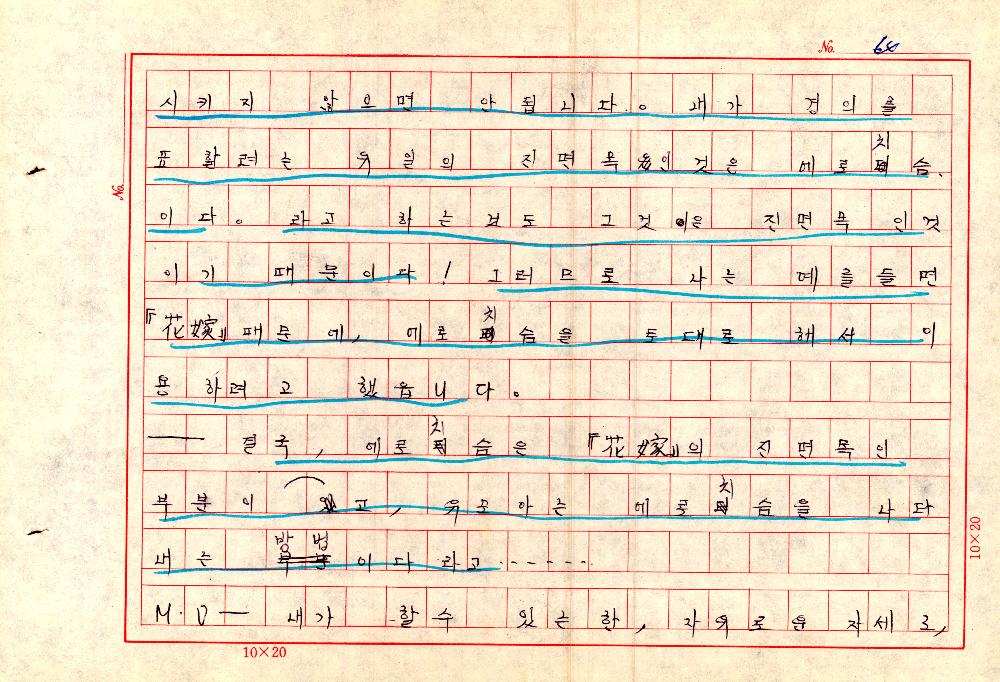 No. 64
시키지 않으면 안됩니다. 내가 경의를
표할려는 유일의 진면목인것은 에로치슴.
이다. 라고 하는것도 그것은 진면목인것
이기 때문이다! 그러므로 나는 예를들면
『花嫁』때문에, 에로치슴을 토대로 해서 이
용하려고 했읍니다.
── 결국, 에로치슴은 『花嫁』의 진면목인
부분이고, 유로아는 에로치슴을 나타
내는 방법이다 라고······
M·D── 내가 할수 있는한, 자유로운 자세로,
No.
10×20
10×20